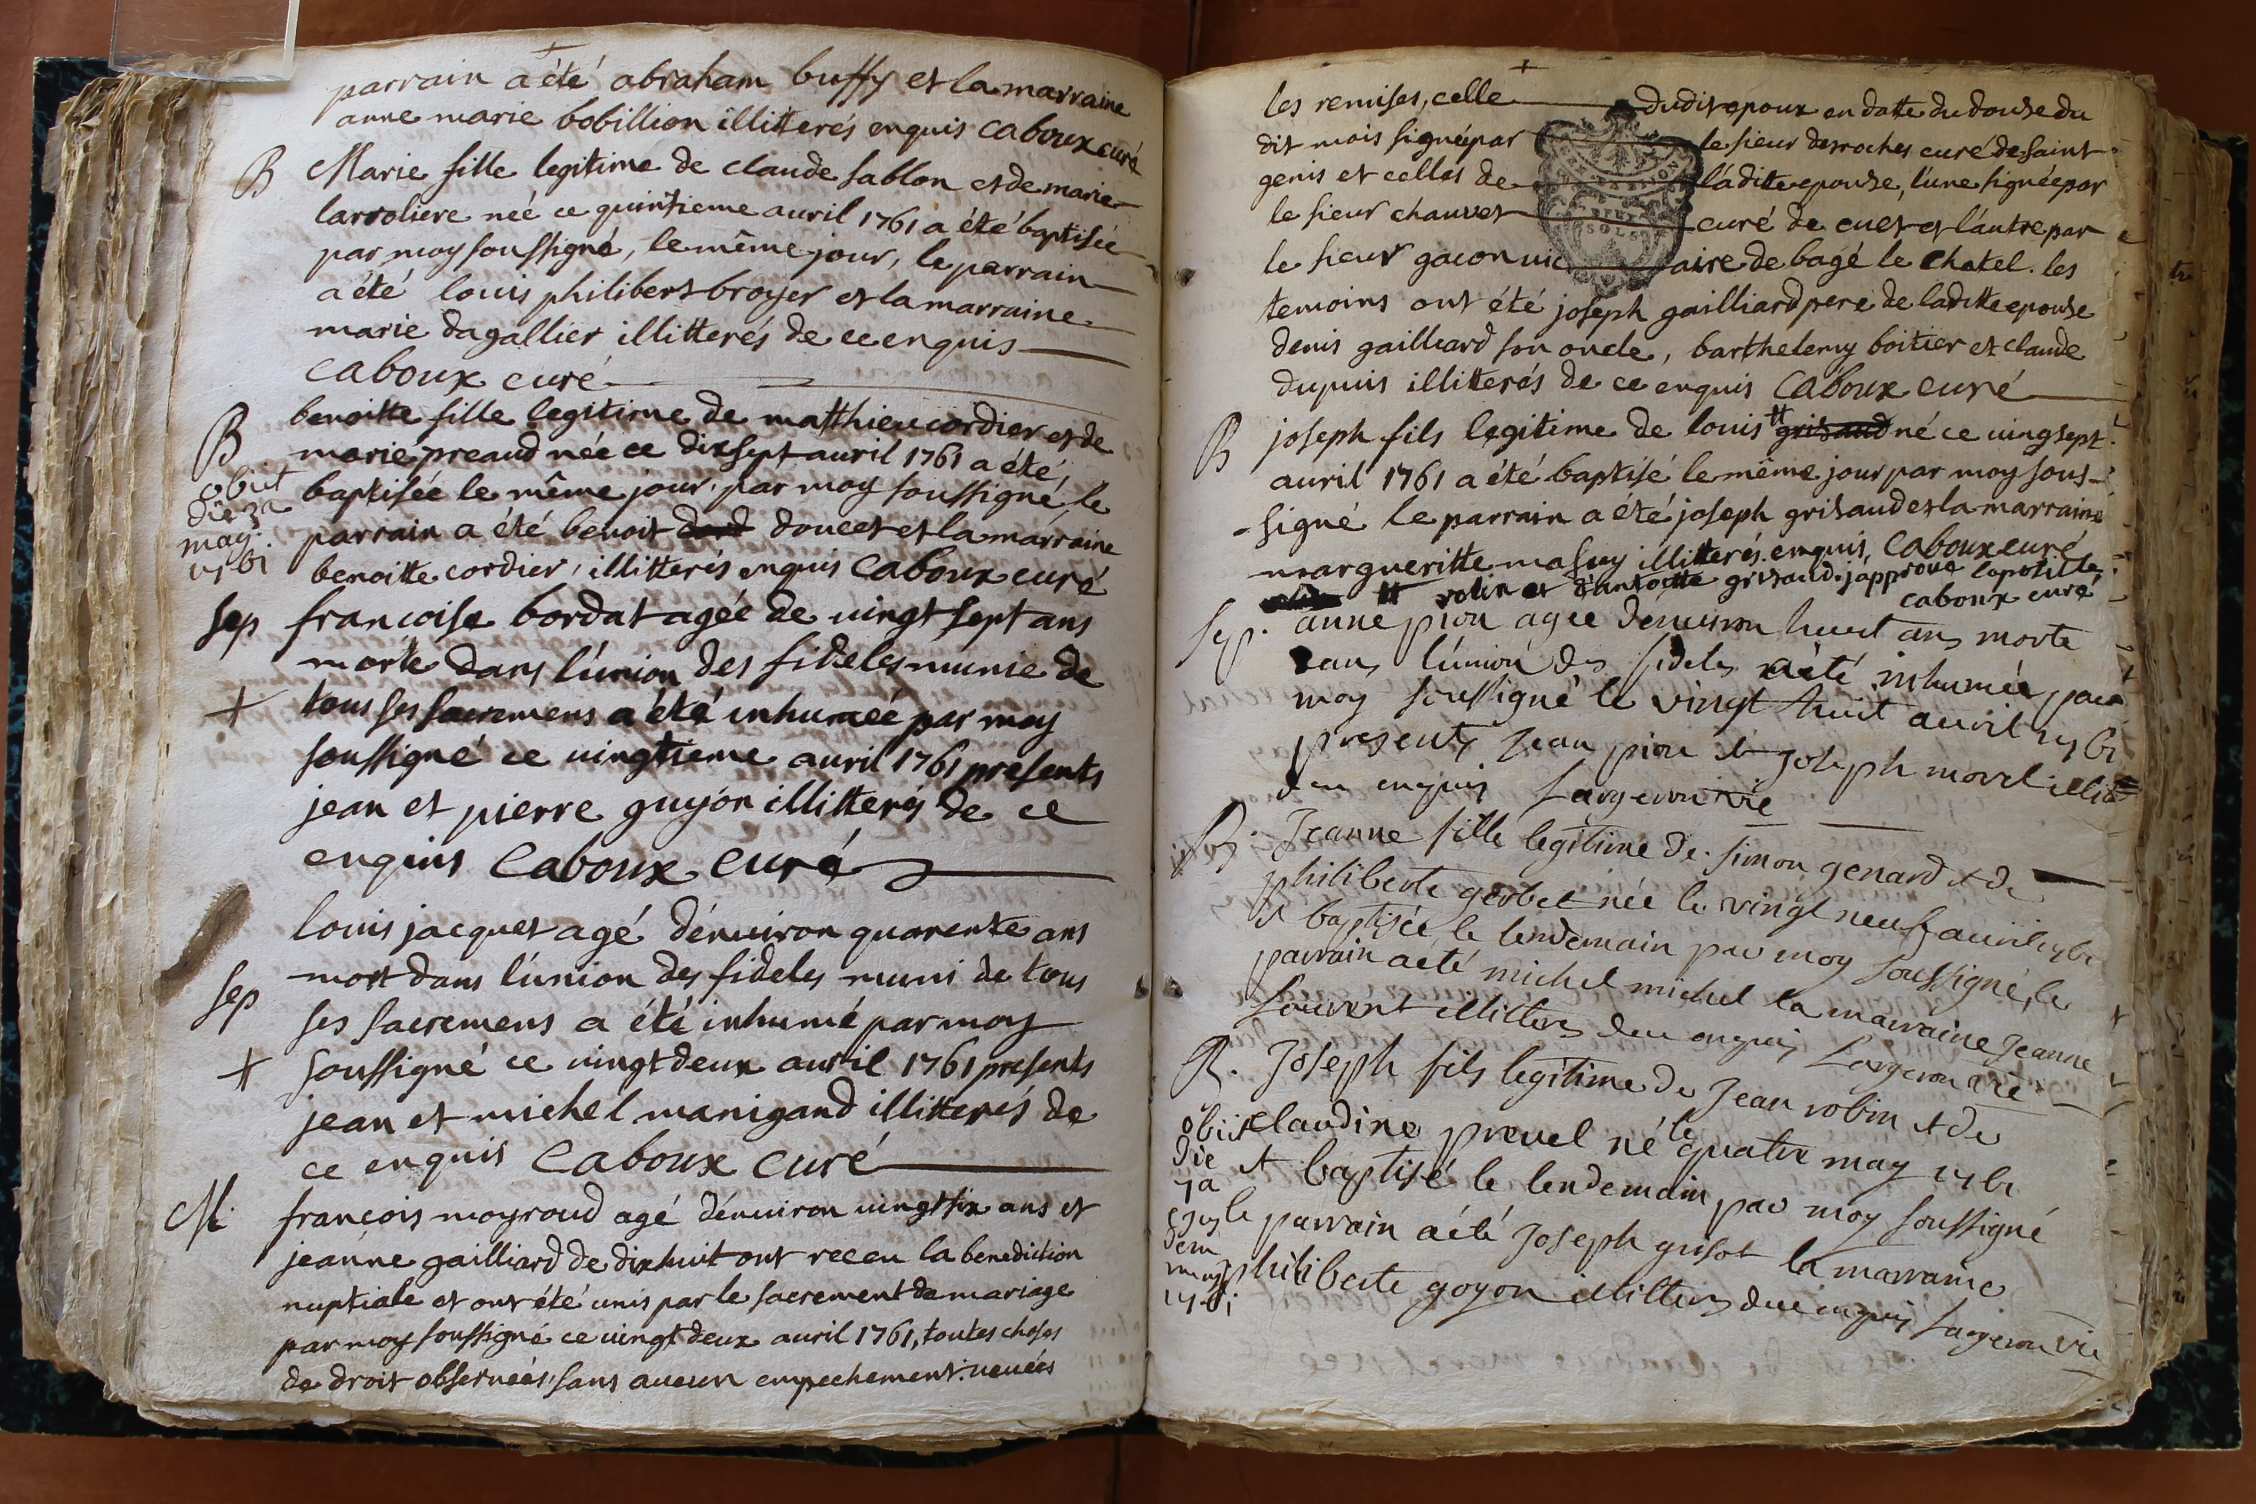 parrain a été abraham buffy et la marraine
anne marie bobillion illitterés enquis caboux curé
B Marie fille legitime de claude sablon et de marie
larroliere neé ce quinzieme auril 1761 a été baptisée
par moy soussigné, le même jour, le parrain
a été louis philibert broyer et la marraine
marie dagallier illitterés de ce enquis
caboux curé
B benoitte fille legitime de matthieu cordier et de
marie preaud née ce dixsept auril 1761 a été
baptisée le même jour par moy soussigné le
parrain a été benoit doucet et la marraine
benoitte cordier, illitterés enquis Caboux curé
obiit
die 3a
may
1761
sep francoise bordat agée de uingt sept ans
morte dans l'union des fideles munie de
tous ses sacremens a été inhumeé par moy
soussigné ce uingtieme auril 1761 presents
jean et pierre guyon illitterés de ce
enquis Caboux curé
louis jacquet agé d'enuiron quarente ans
sep mort dans l'union des fideles muni de tous
ses sacremens a été inhumé par moy
soussigné ce uingt deux auril 1761 presents
jean et michel manigand illitterés de
ce enquis Caboux curé
M. françois moyroud agé d'enuiron uingt six ans et
jeanne gailliard de dixhuit ont receu la benediction
nuptiale et ont été unis par le sacrement de mariage
par moy soussigné ce uingt deux auril 1761, toutes choses
de droit obserueés, sans aucun empechement. ueuées
les remises, celle dudit epoux en datte du douze du
dit mois signée par le sieur desroches curé de saint
genis et celles de la ditte epouze, l'une signée par
le sieur chauvet curé de cuet et l'autre par
le sieur gacon uicaire de bagé le chatel. les
temoins ont été joseph gailliard pere de laditte epouze
denis gailliard son oncle, barthelemy boitier et claude
dupuis illitterés de ce enquis Caboux curé
B joseph fils legitime de louis # grizaud né ce uingsept
auril 1761 a été baptisé le même jour par moy sous-
signé le parrain a été joseph grisaud et la marraine
margueritte masuy illitterés enquis, Caboux curé
# robin et d'antoitte grizaud. j'approuve l'apostille
caboux curé
Sep. anne piou agée d'enuiron huit ans morte
dans l'union des fideles a été inhumée par
moy soussigné le vingt huit auril 1761
presents Jean piou et Joseph morel illit
de ce enquis Largeron vic
B. Jeanne fille legitime de simon genard et de
philiberte gerbet née le vingt neuf auril 1761
et baptisée le lendemain par moy soussigné, le
parrain a été michel michel la marraine Jeanne
Louvent illitterés de ce enquis Largeron vic
B. Joseph fils legitime de Jean robin et de
claudine preuel né le quatre may 1761
et baptisé le lendemain par moy soussigné
le parrain a été Joseph grisot la marraine
philiberte goyon illitterés de ce enquis Largeron vic
obiit
die
7a
ejus
dem
may
1761